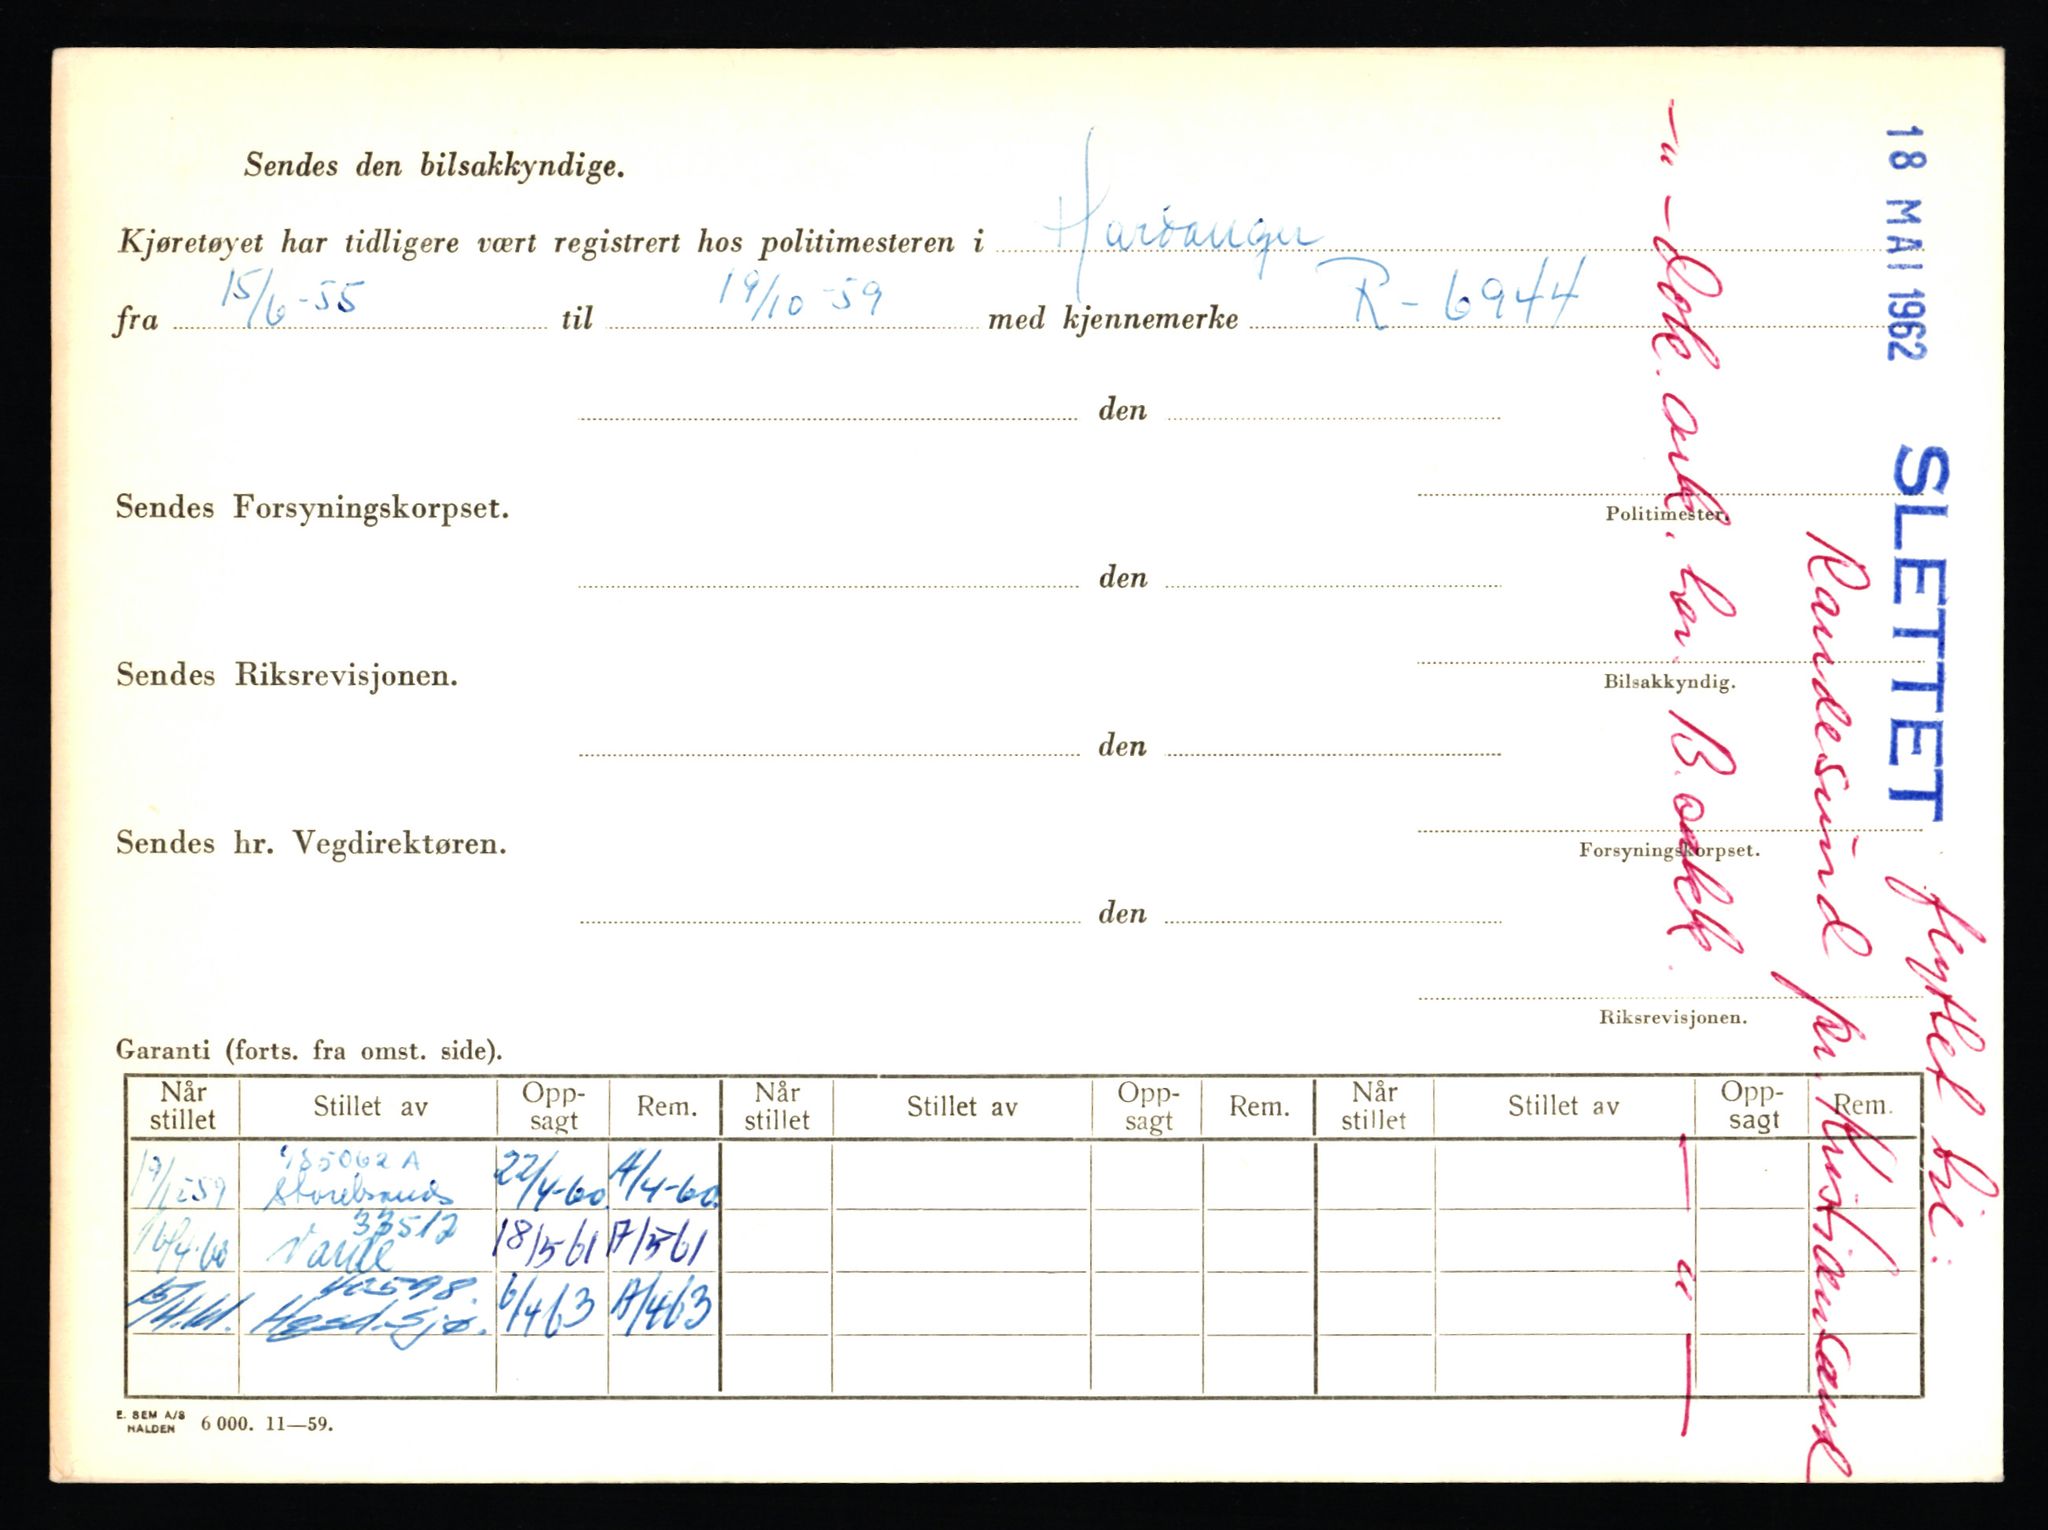 Sendes den bilsakkyndige.
Kjøretøyet har tidligere vært registrert hos politimesteren i Hardanger
fra 15/6-55 til 19/10-59 med kjennemerke R-6944
den
Politimester.
Sendes Forsyningskorpset.
den
Bilsakkyndig.
Sendes Riksrevisjonen.
den
Forsyningskorpset.
Sendes hr. Vegdirektøren.
den
Riksrevisjonen.
18 MAI 1962 SLETTET flyttet til:
Randesund pr. Kristiansand
— " — Dok. ark. B. sakk. — " —
Garanti (forts. fra omst. side).
Når stillet Stillet av Opp-sagt Rem. Når stillet Stillet av Opp-sagt Rem. Når stillet Stillet av Opp-sagt Rem.
185062 A
Storebrands 22/4-60 A/4-60
33512
16/4-60 18/5 61 A/5 61
6/4 63 A/4 63
E. SEM A/S
HALDEN 6 000. 11—59.